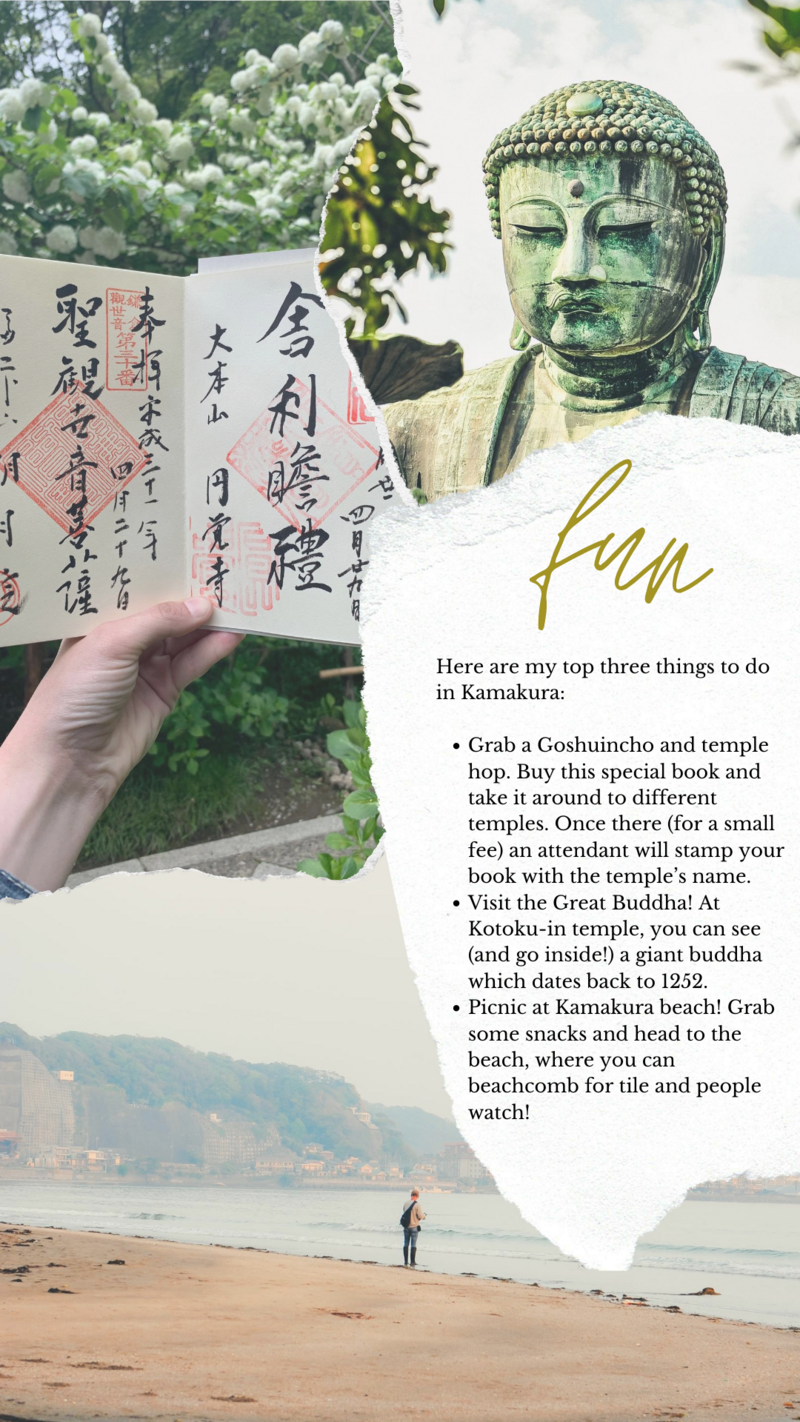 四月廿九日
舎利瞻禮
大本山 円覚寺
奉拝 平成三十一年
四月二十九日
第三十番
聖観世音菩薩
fun
Here are my top three things to do
in Kamakura:
• Grab a Goshuincho and temple
hop. Buy this special book and
take it around to different
temples. Once there (for a small
fee) an attendant will stamp your
book with the temple’s name.
• Visit the Great Buddha! At
Kotoku-in temple, you can see
(and go inside!) a giant buddha
which dates back to 1252.
• Picnic at Kamakura beach! Grab
some snacks and head to the
beach, where you can
beachcomb for tile and people
watch!